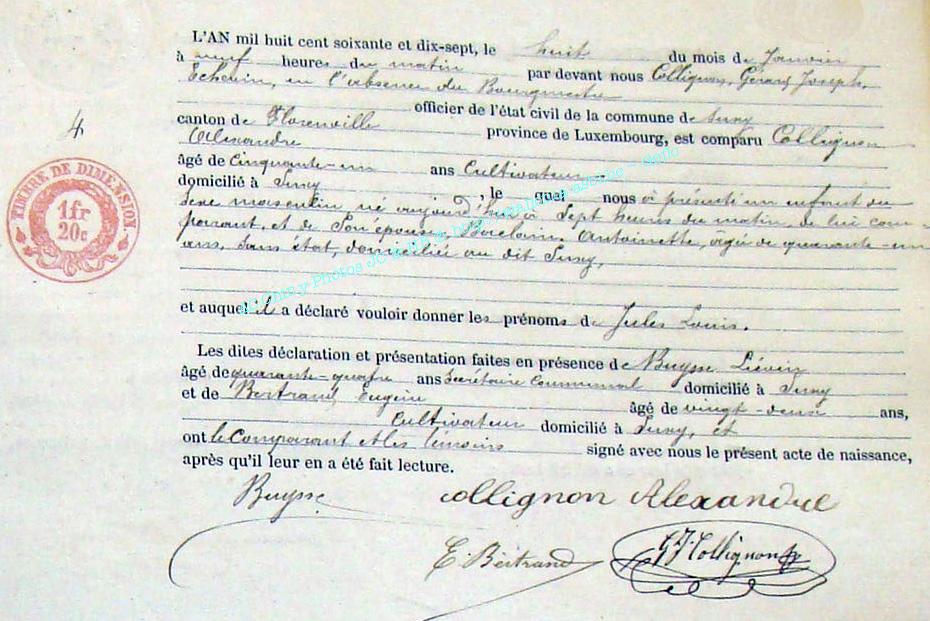 L'AN mil huit cent soixante et dix-sept, le huit du mois de Janvier
à neuf heures du matin par devant nous Collignon, Gérard Joseph,
Echevin, en l'absence du Bourgmestre
officier de l'état civil de la commune de Suny
canton de Florenville province de Luxembourg, est comparu Collignon
Alexandre
âgé de Cinquante-un ans Cultivateur
domicilié à Suny, le quel nous a présenté un enfant du
Sexe masculin né aujourd'hui à Sept heures du matin, de lui com-
parant, et de Son épouse Antoinette, âgée de quarante-un
ans, Sans état, domiciliée au dit Suny,
et auquel il a déclaré vouloir donner les prénoms de Jules Louis.
Les dites déclaration et présentation faites en présence de Buysse Liévin
âgé de quarante-quatre ans Secrétaire Communal domicilié à Suny
et de Bertrand Eugène âgé de vingt-deux ans,
Cultivateur domicilié à Suny, et
ont le Comparant et les témoins signé avec nous le présent acte de naissance,
après qu'il leur en a été fait lecture.
4
TIMBRE DE DIMENSION
1fr
20c
Buysse
Collignon Alexandre
E. Bertrand
G J. Collignon